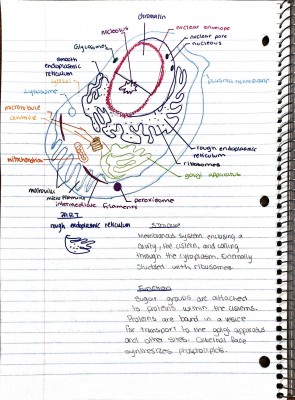 chromatin
nucleolus
nuclear envelope
nuclear pore
nucleus
smooth
endoplasmic
reticulum
plasma membrane
lysosome
microtubule
centriole
rough endoplasmic
reticulum
mitochondria
ribosomes
golgi apparatus
microvillus
microfilaments
intermediate filaments
peroxisome
PART
Structure
rough endoplasmic reticulum
Membranous system enclosing a
cavity, the cistern, and coiling
through the cytoplasm. Externally
studded with ribosomes.
Function
Sugar groups are attached
to proteins within the cisterns.
Proteins are bound in a vesicle
for transport to the golgi apparatus
and other sites. External face
synthesizes phospholipids.